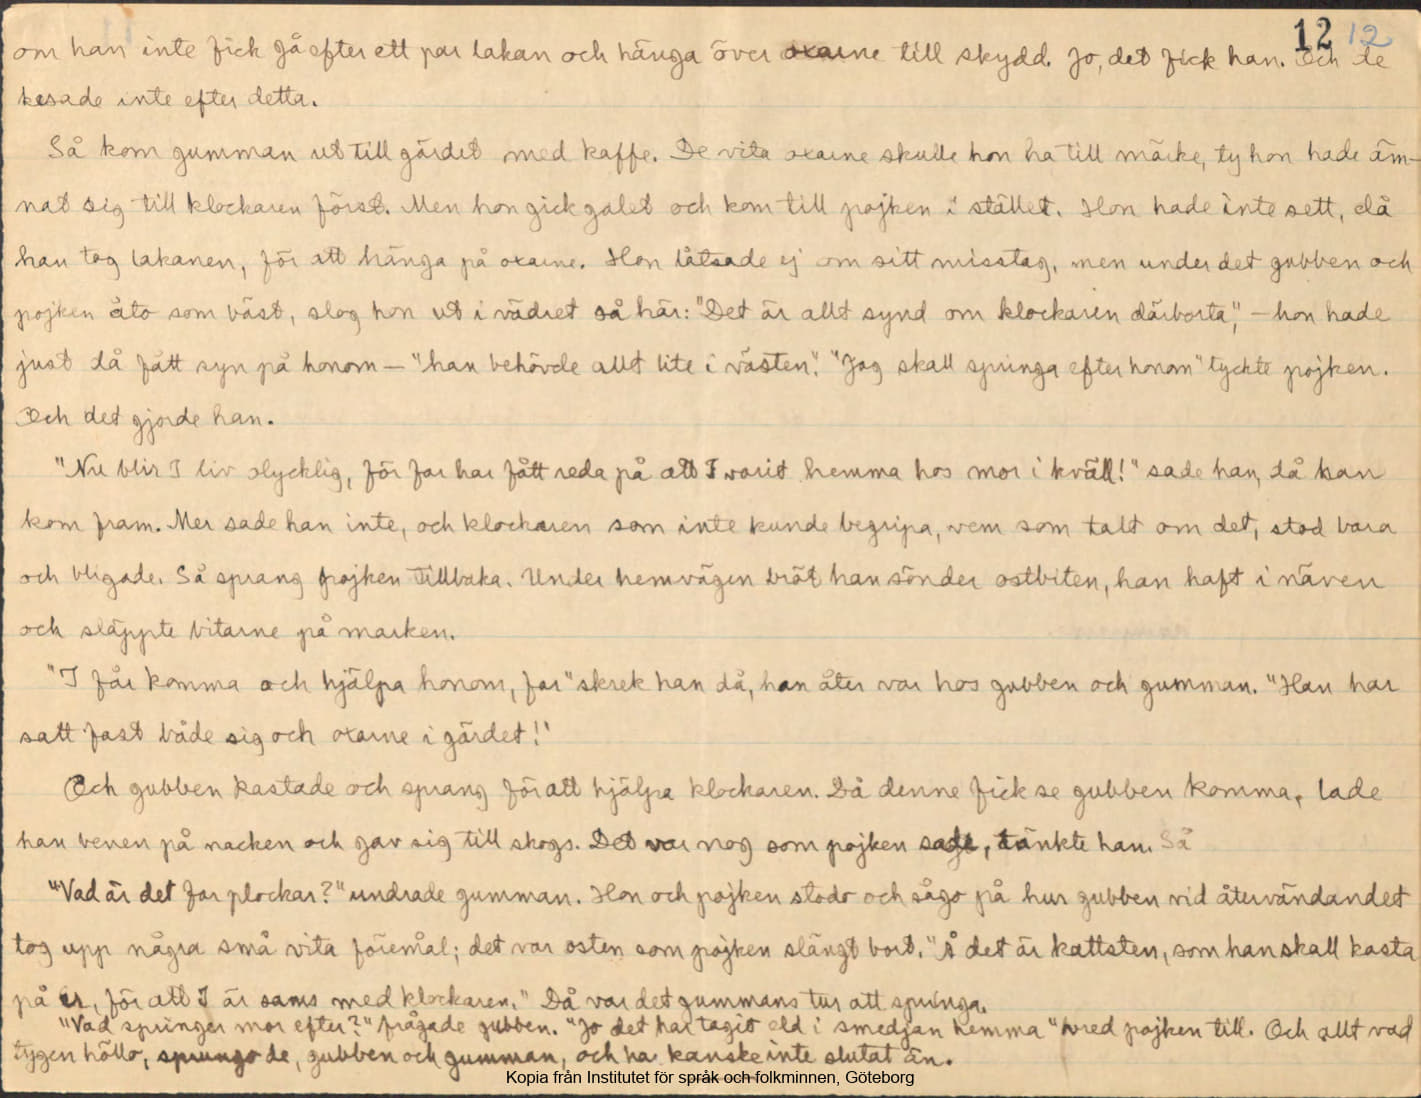 12 12
om han inte fick gå efter ett par lakan och hänga över oxarne till skydd. Jo, det fick han. Och de
kesade inte efter detta.
Så kom gumman ut till gärdet med kaffe. De vita oxarne skulle hon ha till märke, ty hon hade äm-
nat sig till klockaren först. Men hon gick galet och kom till pojken i stället. Hon hade inte sett, då
han tog lakanen, för att hänga på oxarne. Hon låtsade ej om sitt misstag, men under det gubben och
pojken åto som bäst, slog hon ut i vädret så här: "Det är allt synd om klockaren därborta", – hon hade
just då fått syn på honom – "han behövde allt lite i västen". "Jag skall springa efter honom" tyckte pojken.
Och det gjorde han.
"Nu blir I liv olycklig, för far har fått reda på att I varit hemma hos mor i kväll!" sade han, då han
kom fram. Mer sade han inte, och klockaren som inte kunde begripa, vem som talt om det, stod bara
och bligade. Så sprang pojken tillbaka. Under hemvägen bröt han sönder ostbiten, han haft i näven
och släppte bitarne på marken.
"I får komma och hjälpa honom, far" skrek han då, han åter var hos gubben och gumman. "Han har
satt fast både sig och oxarne i gärdet!"
Och gubben kastade och sprang för att hjälpa klockaren. Då denne fick se gubben komma, lade
han benen på nacken och gav sig till skogs. Det var nog som pojken sade, tänkte han. Så
"Vad är det far plockar?" undrade gumman. Hon och pojken stodo och sågo på hur gubben vid återvändandet
tog upp några små vita föremål; det var osten som pojken slängt bort. "Å det är kattsten, som han skall kasta
på er, för att I är sams med klockaren." Då var det gummans tur att springa.
"Vad springer mor efter?" frågade gubben. "Jo det har tagit eld i smedjan hemma" vred pojken till. Och allt vad
tygen höllo, sprungo de, gubben och gumman, och ha kanske inte slutat än.
Kopia från Institutet för språk och folkminnen, Göteborg